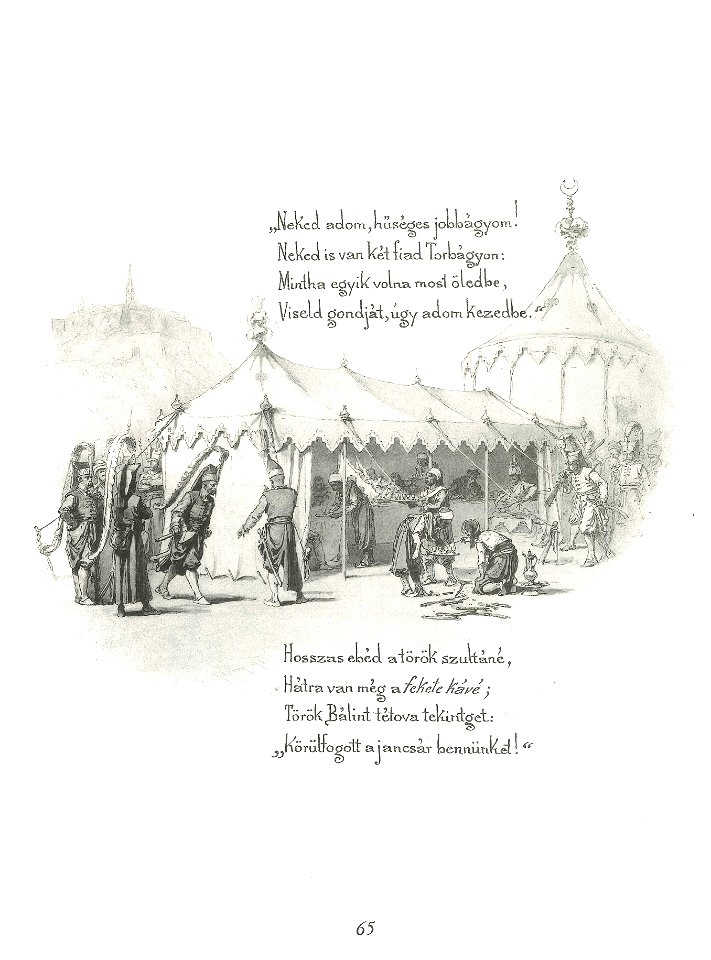 „Neked adom, hűséges jobbágyom!
Neked is van két fiad Torbágyon:
Mintha egyik volna most öledbe,
Viseld gondját, úgy adom kezedbe.“
Hosszas ebéd a török szultáné,
Hátra van még a fekete kávé;
Török Bálint tétova tekintget:
„Körülfogott a jancsár bennünket!“
65